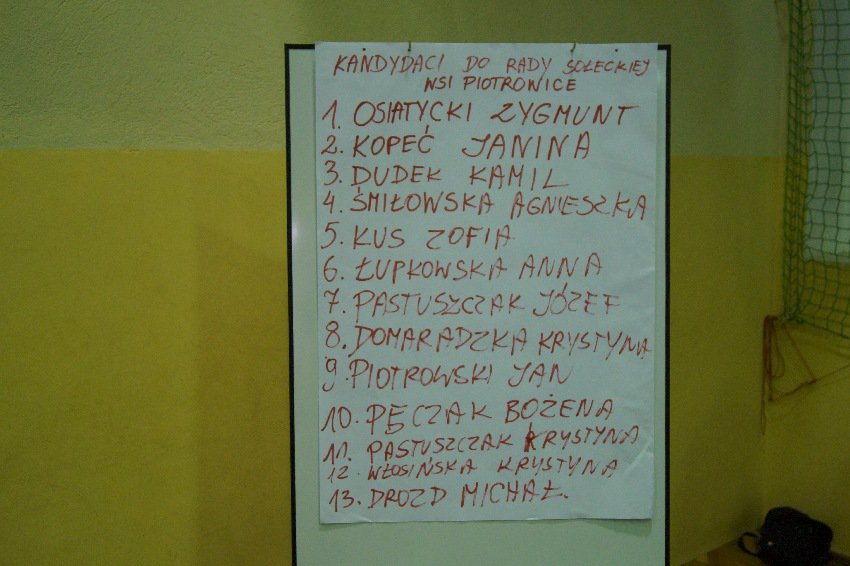 KANDYDACI DO RADY SOŁECKIEJ
WSI PIOTROWICE
1. OSIATYCKI ZYGMUNT
2. KOPEĆ JANINA
3. DUDEK KAMIL
4. ŚMIŁOWSKA AGNIESZKA
5. KUS ZOFIA
6. ŁUPKOWSKA ANNA
7. PASTUSZCZAK JÓZEF
8. DOMARADZKA KRYSTYNA
9. PIOTROWSKI JAN
10. PĘCZAK BOŻENA
11. PASTUSZCZAK KRYSTYNA
12. WŁOSIŃSKA KRYSTYNA
13. DROZD MICHAŁ.